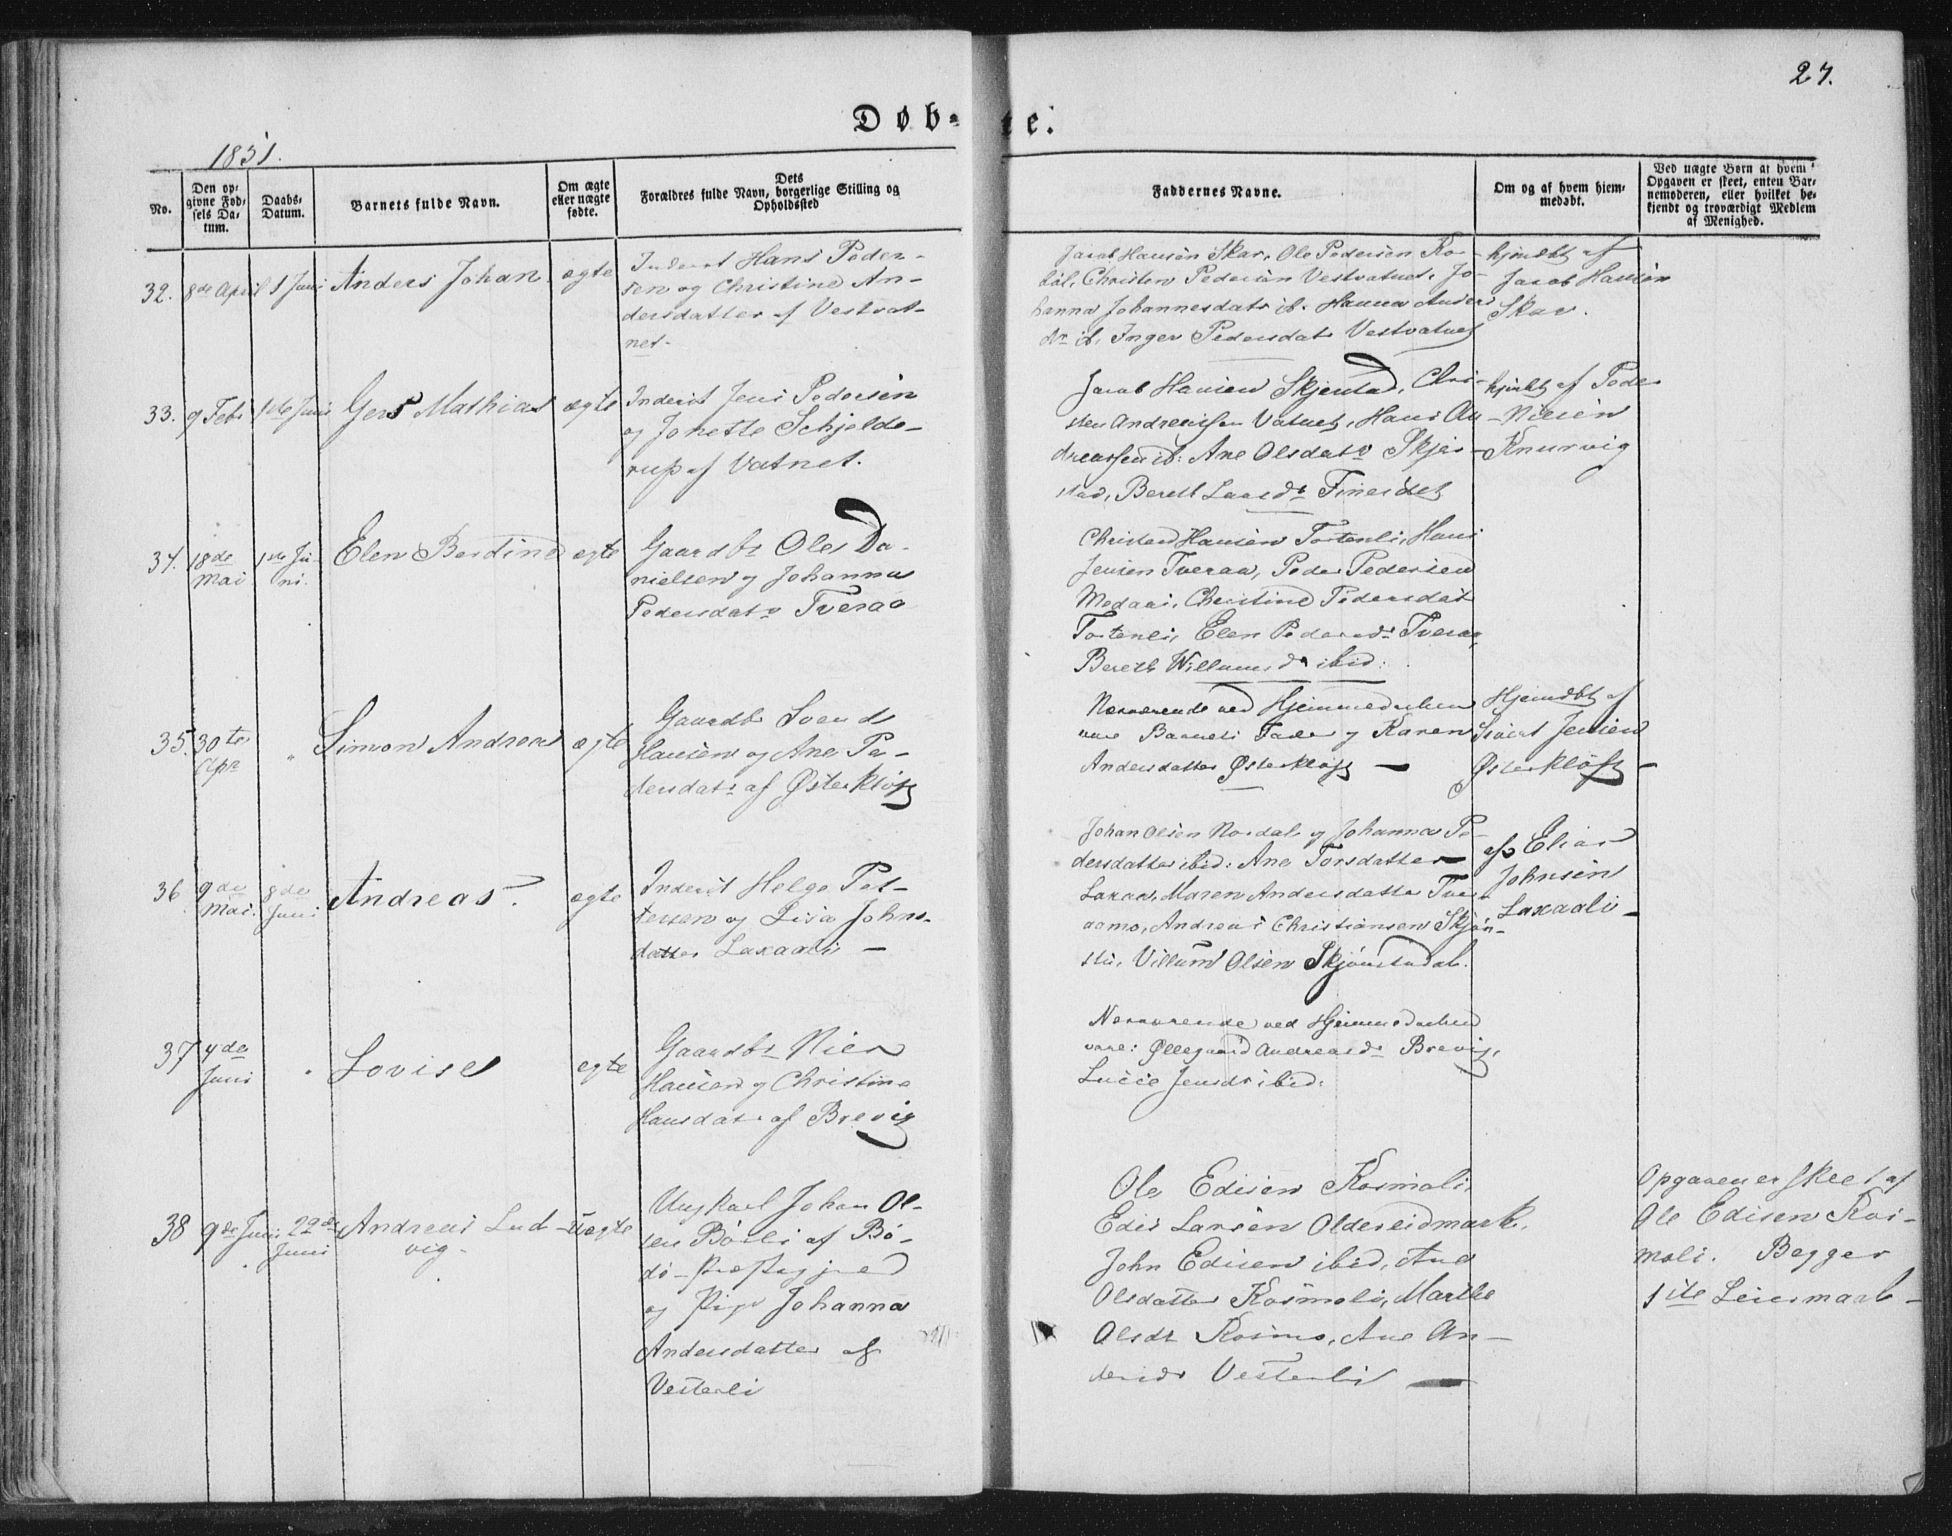 27.
Døb-te.
1851.
No.
Den op-
givne Fød-
sels Da-
tum.
Daabs-
Datum.
Barnets fulde Navn.
Om ægte
eller uægte
fødte.
Dets
Forældres fulde Navn, borgerlige Stilling og
Opholdssted
Faddernes Navne.
Om og af hvem hjem-
medøbt.
Ved uægte Børn at hvem
Opgaven er skeet, enten Bar-
nemoderen, eller hvilket be-
kjendt og troværdigt Medlem
af Menighed.
32.
8de April
1 Juni
Anders Johan
ægte
Inderst Hans Peder-
sen og Christine An-
dersdatter af Vestvat-
net.
Jacob Hansen Skar, Ole Pedersen Ko-
bøl, Christen Pedersen Vestvatnet, Jo-
hanna Johannesdatr ib. Hanna Anders
dr ib. Inger Pedersdatr Vestvatnet
hjmdbt af
Jacob Hansen
Skar.
33.
9 Feb
1ste Juni
Gert Mathias
ægte
Inderst Jens Pedersen
og Jonette Schjelde-
rup af Vatnet.
Jacob Hansen Skjenstad, Chri-
sten Andreassen Vatnet, Hans An-
dreassen ib: Ane Olsdatr Skjer-
stad, Bereth Larsdr Fineidet
hjmdbt af Peder
Nilsen
Knurvig
34.
18de
Mai
1ste Ju-
ni.
Elen Berdine
egte
Gaardbr Ole Da-
nielsen og Johanna
Pedersdatr Tveraa
Christen Hansen Tortenli, Hans
Jensen Tveraa, Peder Pedersen
Medaas, Christine Pedersdat
Tortenli, Elen Pedersdr Tveraa,
Bereth Willumsdr ibid:
35.
30te
Apr
"
Simon Andreas
ægte
Gaardbr Svend
Hansen og Ane Pe-
dersdatr af Østerkløft
Nærværende ved Hjemmedaaben
vare Barnets Fader og Karen
Andersdatter Østerkløft —
Hjemdbt af
Sivert Jensen
Østerkløft —
36
9de
Mai.
8de
Juni
Andreas.
ægte
Inderst Helge Pet-
tersen og Lisa Johns-
datter Laxaali —
Johan Olsen Nordal og Johanna Pe-
dersdatter ibid: Ane Torsdatter
Laxaa, Maren Andersdatter Tver-
aamo, Andreas Christiansen Skjøn-
stu, Villum Olsen Skjønstudal.
af Elias
Johnsen
Laxaali —
37
4de
Juni
"
Lovise
egte
Gaardbr Niels
Hansen og Christine
Hansdatr af Brevig
Nærværende ved Hjemmedaaben
vare: Øllegaard Andreasdr Brevig,
Lucie Jensdr ibid:
38
9de Juni
22de
Juni
Andreas Lud-
vig.
Uægte
Ungkarl Johan Ol-
sen Børli af Bø-
dø-Præstegjeld
og Pige Johanna
Andersdatter af
Vesterli
Ole Edisen Kosmoli,
Edis Larsen Oldereidmark,
John Edisen ibid, Ane
Olsdatter Kosmoli, Marthe
Olsdr Kosmo, Ane An-
dersdr Vesterli —
Opgaven er skeet af
Ole Edisen Kos-
moli. Begges
1ste Leiermaal —